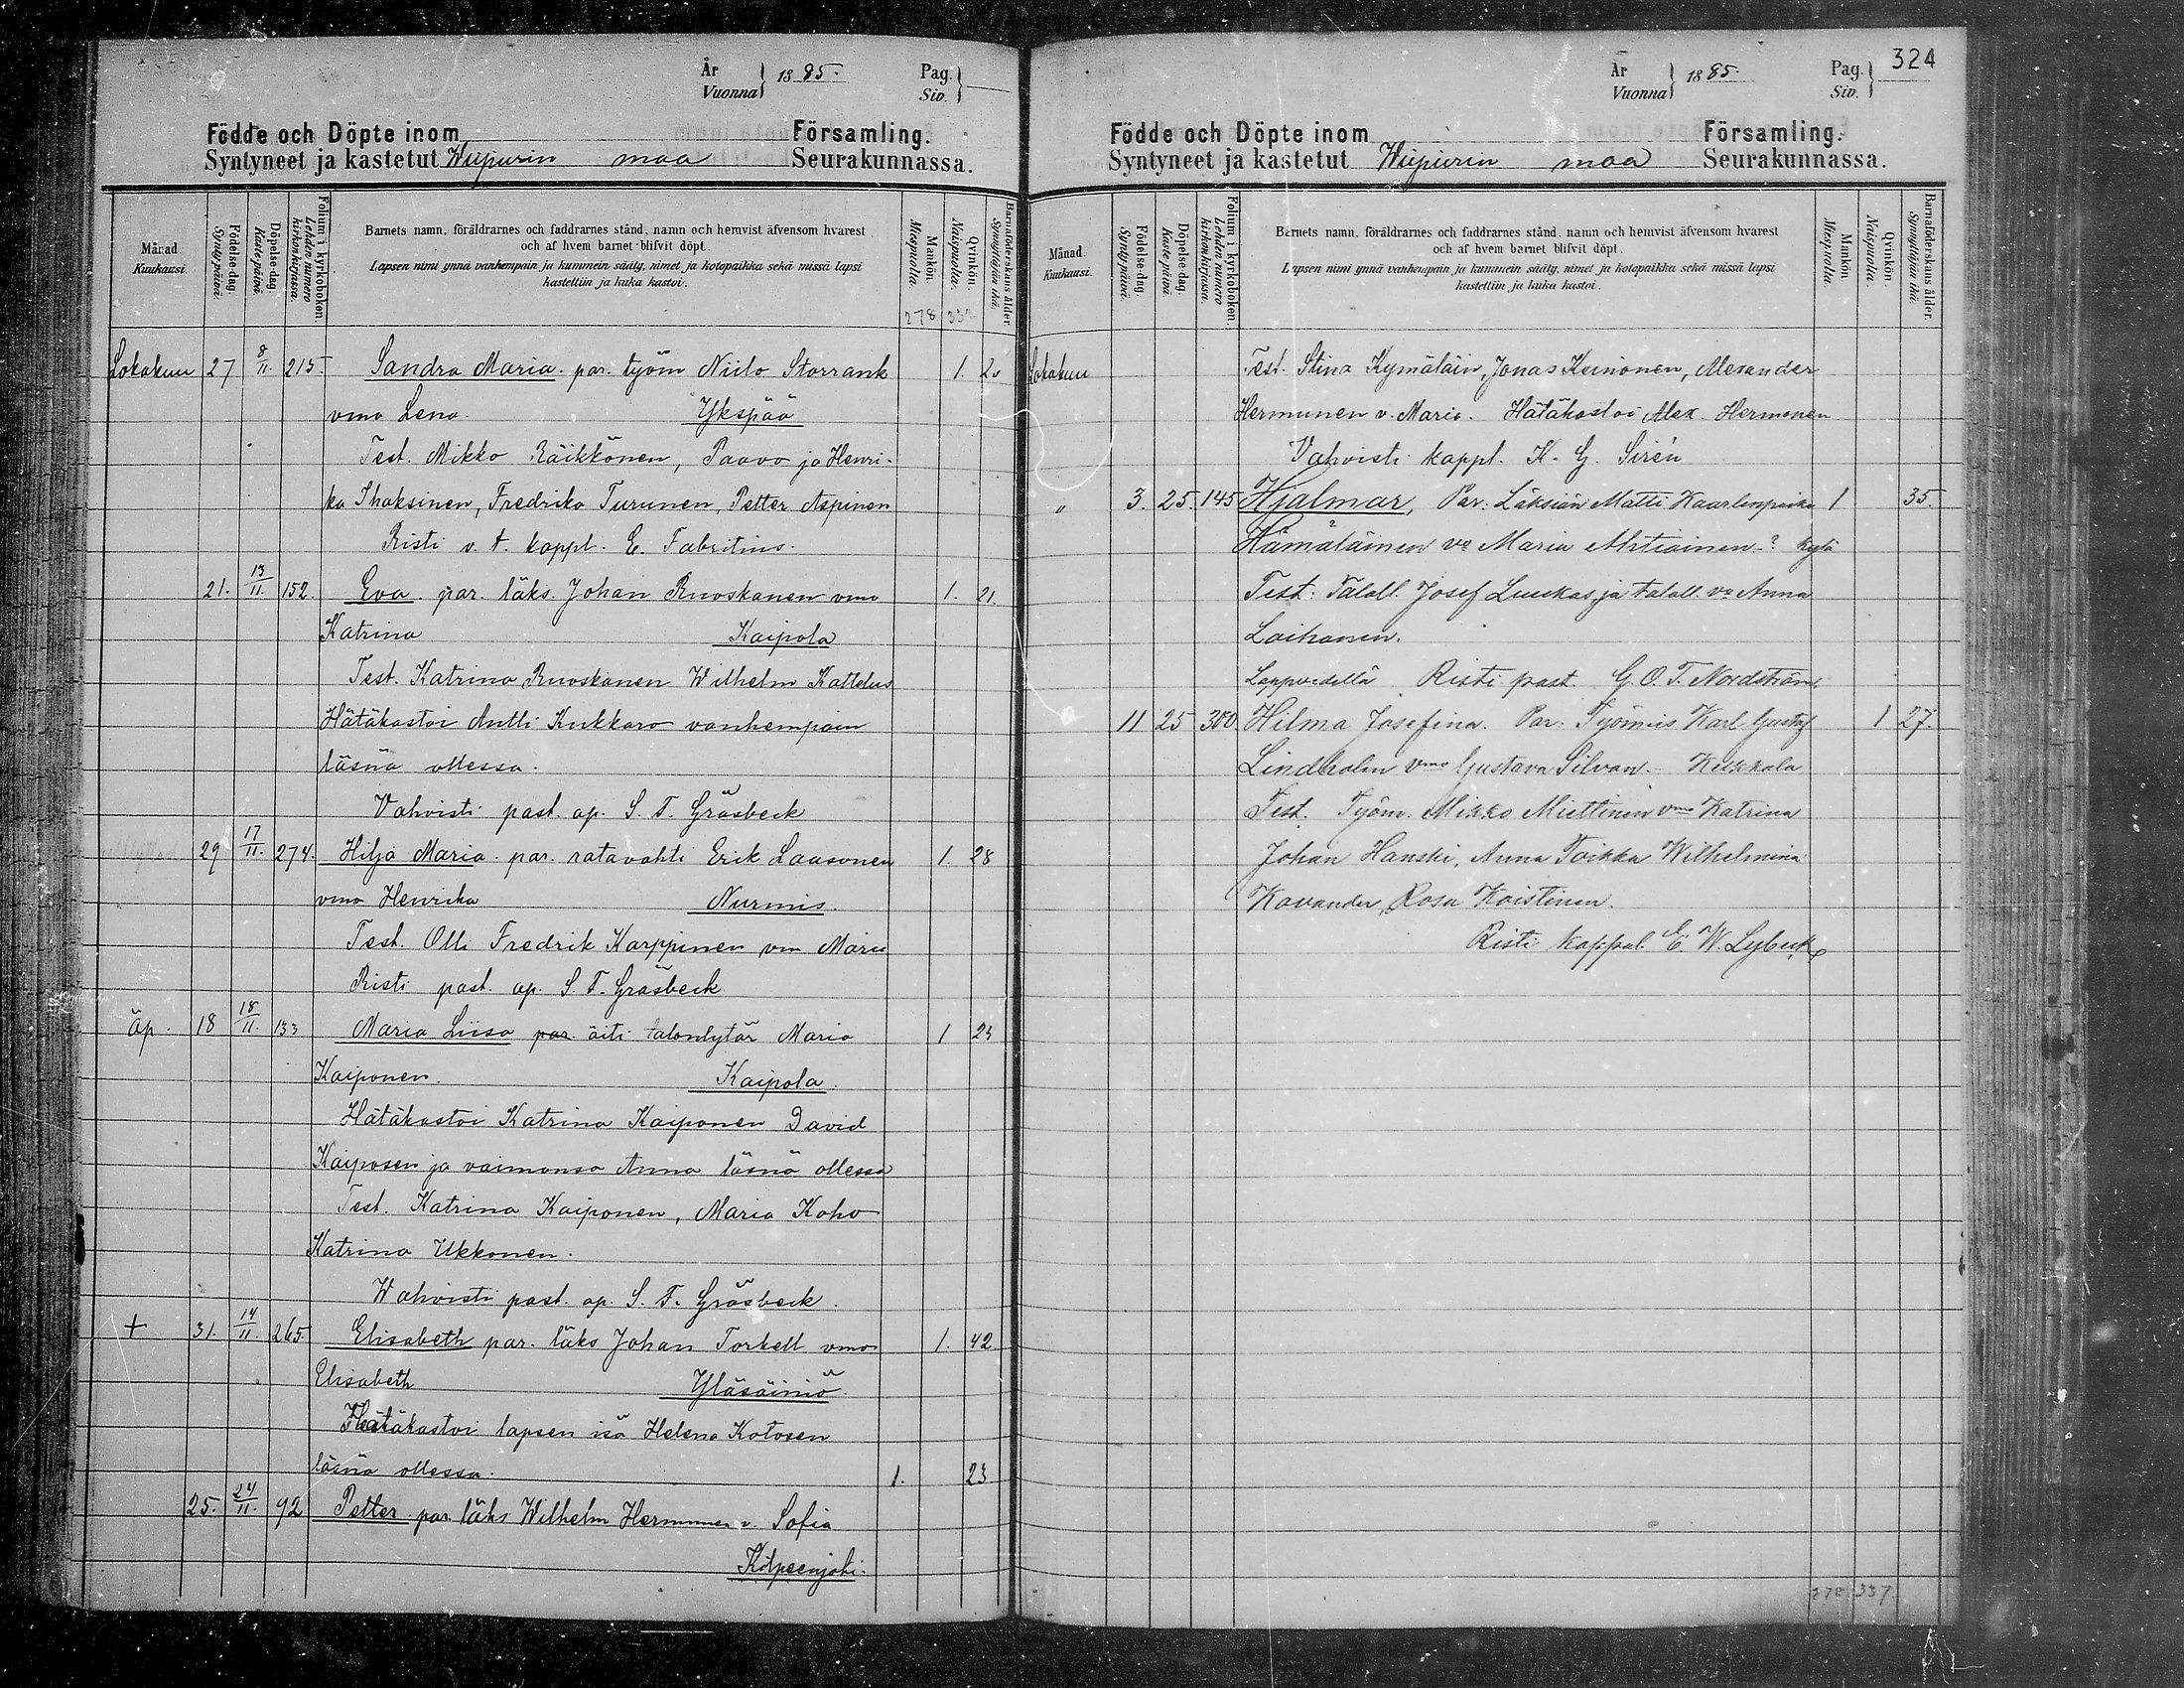 År
Vuonna } 1885.
Pag.
Siv. }
Födde och Döpte inom Församling.
Syntyneet ja kastetut Wiipurin maa Seurakunnassa.
Månad.
Kuukausi.
Födelse-dag.
Synty-päivä.
Döpelse-dag.
Kaste-päivä.
Folium i kyrkoboken.
Lehden numero kirkonkirjassa.
Barnets namn, föräldrarnes och faddrarnes stånd, namn och hemvist äfvensom hvarest
och af hvem barnet blifvit döpt.
Lapsen nimi ynnä vanhempain ja kummein sääty, nimet ja kotopaikka sekä missä lapsi
kastettiin ja kuka kastoi.
Mankön.
Miespuolia.
Qvinkön.
Naispuolia.
Barnaföderskans ålder.
Synnyttäjän ikä.
278 332
Lokakuu 27 8/11. 215. Sandra Maria. par. työm Niilo Storrank 1. 20
vmo Lena. Ykspää
Test. Mikko Räikkönen, Paavo ja Henri-
ka Ihaksinen, Fredrika Turunen, Petter Aspinen
Risti v. t. kappl. E. Fabritius.
21. 13/11. 152. Eva. par. läks. Johan Ruoskanen vmo 1. 21.
Katrina Kaipola
Test. Katrina Ruoskanen Wilhelm Kattelus
Hätäkastoi Antti Kukkaro vanhempain
läsnä ollessa.
Vahvisti past. ap. S. F. Gräsbeck
29 17/11. 274. Hilja Maria. par. ratavahti Erik Laasonen 1. 28
vmo Henrika Nurmis.
Test. Olli Fredrik Karppinen vm Maria
Risti past. ap. S. F. Gräsbeck
äp. 18 18/11. 133 Maria Liisa par. äiti talontytär Maria 1 23
Kaiponen. Kaipola.
Hätäkastoi Katrina Kaiponen David
Kaiposen ja vaimonsa Anna läsnä ollessa
Test. Katrina Kaiponen, Maria Koho
Katrina Ukkonen.
Wahvisti past. ap. S. F. Gräsbeck.
+ 31. 14/11. 265. Elisabeth par. läks Johan Torkell vmo 1. 42
Elisabeth Yläsäiniö.
Hätäkastoi lapsen isä Helena Kotosen
läsnä ollessa. 1. 23
25. 24/11. 92 Petter. par. läks Wilhelm Hermunen v. Sofia
Kilpeenjoki.
324
År
Vuonna } 1885.
Pag.
Siv. }
Födde och Döpte inom Församling.
Syntyneet ja kastetut Wiipurin maa Seurakunnassa.
Månad.
Kuukausi.
Födelse-dag.
Synty-päivä.
Döpelse-dag.
Kaste-päivä.
Folium i kyrkoboken.
Lehden numero kirkonkirjassa.
Barnets namn, föräldrarnes och faddrarnes stånd, namn och hemvist äfvensom hvarest
och af hvem barnet blifvit döpt.
Lapsen nimi ynnä vanhempain ja kummein sääty, nimet ja kotopaikka sekä missä lapsi
kastettiin ja kuka kastoi.
Mankön.
Miespuolia.
Qvinkön.
Naispuolia.
Barnaföderskans ålder.
Synnyttäjän ikä.
Lokakuu Test. Stina Kymäläin, Jonas Keinonen, Alexander
Hermunen v. Maria. Hätäkastoi Alex. Hermonen
Vahvisti kappl. K. G. Sirén
" 3. 25. 145 Hjalmar, Par: Läksiän Matti Kaarlenpoika 1 35.
Hämäläinen vo Maria Ahtiainen.? kylä
Test: Talall. Josef Luukas ja talall. vo Anna
Laihanen.
Lappvedellä Risti past. G. O. T. Nordström.
11 25 300 Hilma Josefina. Par: Työmies Karl Gustaf 1 27.
Lindholm vmo Gustava Silvan. Kukkala
Test. Työm. Mikko Miettinen vmo Katrina
Johan Hanski, Anna Toikka Wilhelmina
Kavander, Rosa Koistinen.
Risti kappal. E. W. Lybeck
278. 337.